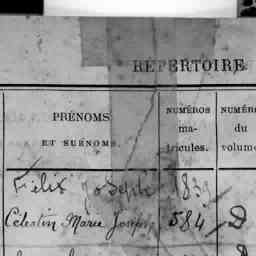 RÉPERTOIRE
PRÉNOMS
ET SURNOMS.
NUMÉROS
ma-
tricules.
NUMÉRO
du
volume
Félix Joseph 1839
Célestin Marie Joseph 584 D